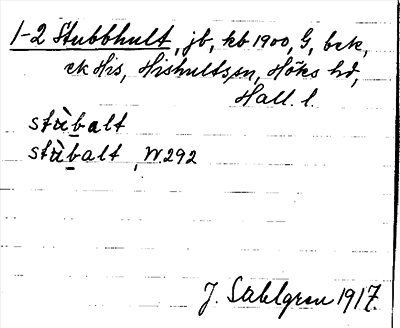 1-2 Stubbhult, jb, kb 1900, G, bek,
ek His, Hishults sn, Höks hd,
Hall. l.
stùbalt
stùbalt, W. 292
J. Sahlgren 1917.